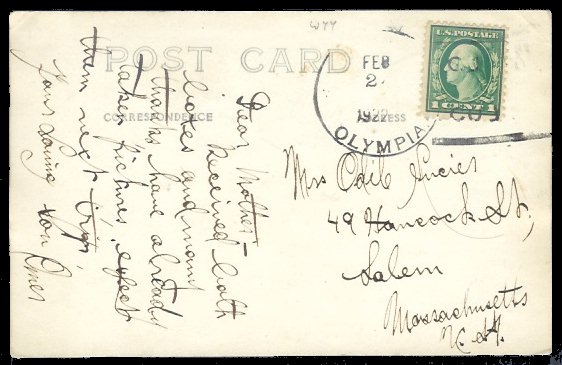 W77
POST CARD
CORRESPONDENCE
ADDRESS
U.S. POSTAGE
1 CENT 1
FEB
2
1922
OLYMPIA
Dear Mother -
Received both
boxes and many
thanks have already
taken pictures, expect
them next trip
Your Loving son Omer
Mrs Odil Lucier
49 Hancock St,
Salem
Massachusetts